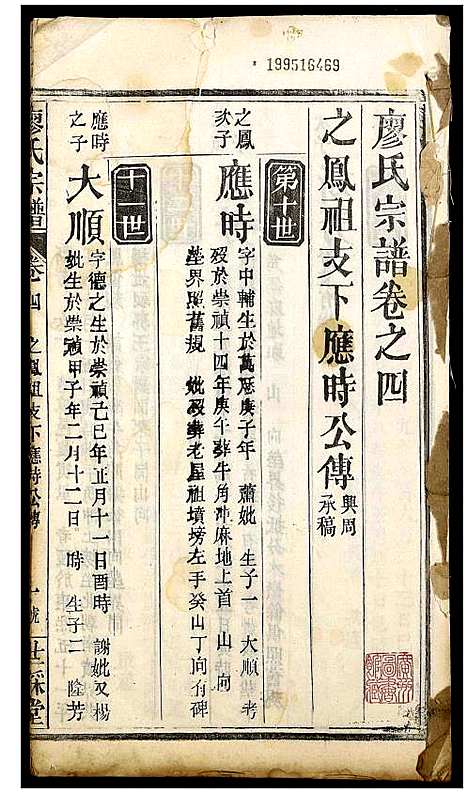 199516469
廖氏宗譜卷之四
之鳳祖支下應時公傳
興周
承稿
第十世
之鳳
次子
應時
字中輔生於萬厯庚子年 蕭妣 生子一 大順考
殁於崇禎十四年庚午葬牛角冲麻地上首 山 向
塋界照舊規 妣殁葬老屋祖墳塝左手癸山丁向有碑
十一世
應時
之子
大順
字德之生於崇禎己巳年正月十一日酉時 謝妣又楊
妣生於崇禎甲子年二月十二日 時 生子二 隆芳
廖氏宗譜
卷四
之鳳祖支下應時公傳
一號